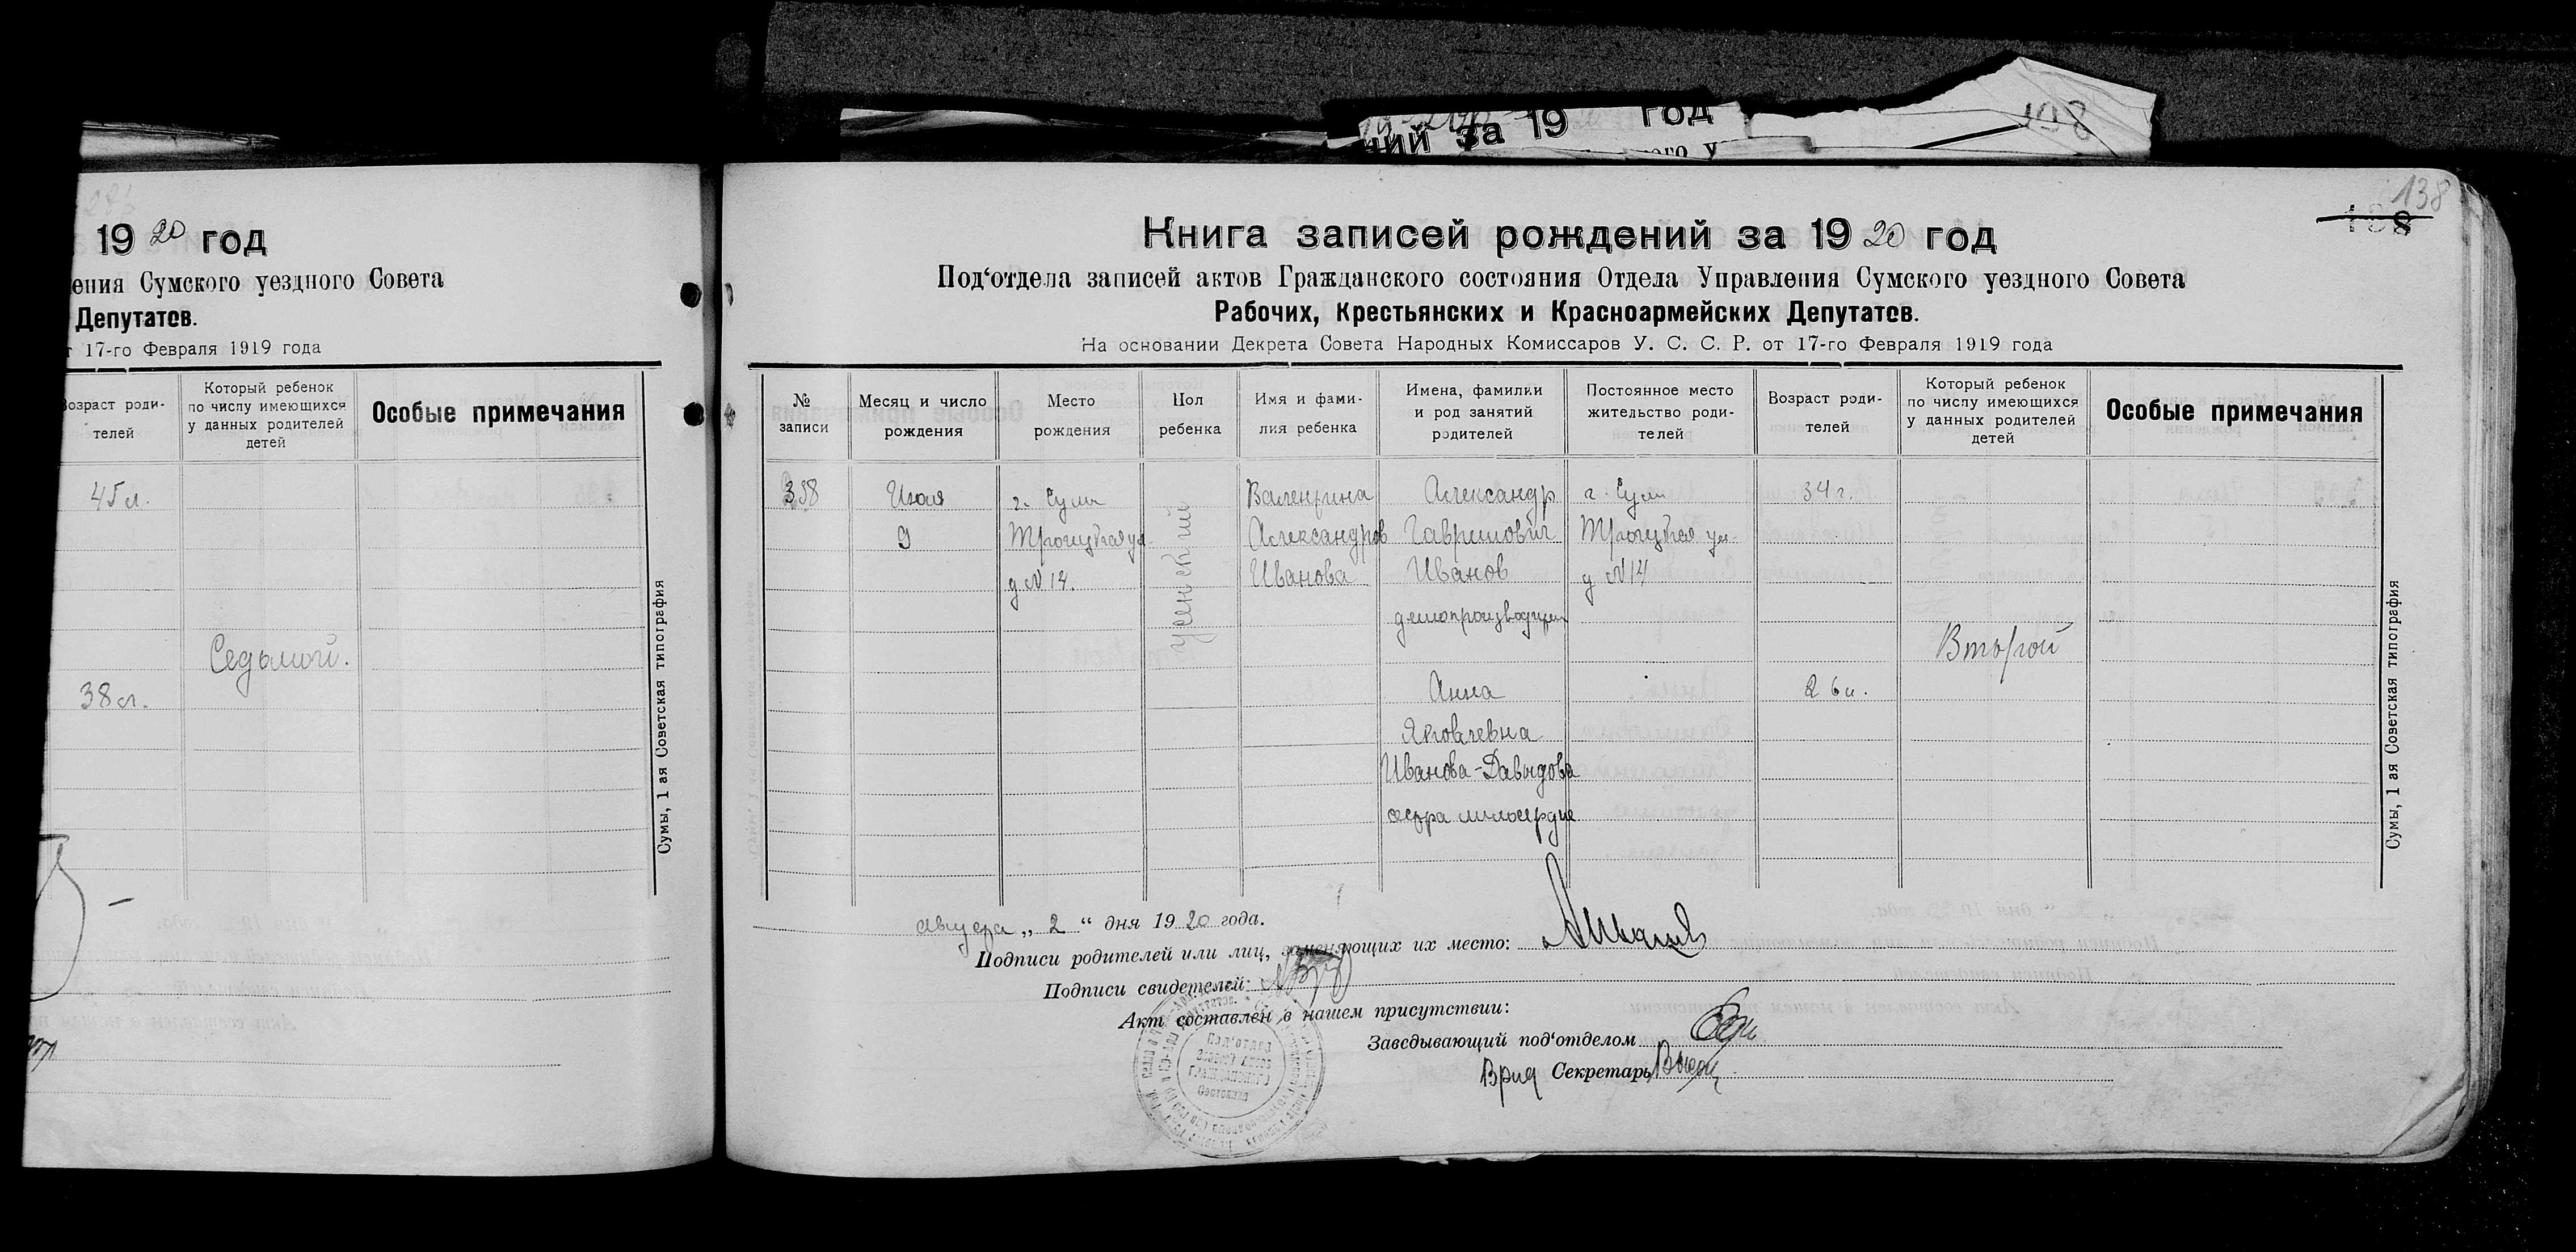 ний за 19 год
108
1920 год
ения Сумского уездного Совета
Депутатов.
т 17-го Февраля 1919 года
Возраст роди-
телей
Который ребенок
по числу имеющихся
у данных родителей
детей
Особые примечания
45 л.
Седьмой.
38 л.
Сумы, 1 ая Советская типография
138
138
Книга записей рождений за 1920 год
Под‘отдела записей актов Гражданского состояния Отдела Управления Сумского уездного Совета
Рабочих, Крестьянских и Красноармейских Депутатов.
На основании Декрета Совета Народных Комиссаров У. С. С. Р. от 17-го Февраля 1919 года
№
записи
Месяц и число
рождения
Место
рождения
Пол
ребенка
Имя и фами-
лия ребенка
Имена, фамилии
и род занятий
родителей
Постоянное место
жительство роди-
телей
Возраст роди-
телей
Который ребенок
по числу имеющихся
у данных родителей
детей
Особые примечания
358
Июля
9
г. Сумы
Троицкая ул.
д № 14.
женский
Валентина
Александров
Иванова
Александр
Гаврилович
Иванов
делопроизводит
Анна
Яковлевна
Иванова-Давыдова
сестра милосердие
г. Сумы
Троицкая ул.
д № 14
34 г.
26 л.
Второй
Сумы, 1 ая Советская типография
августа „ 2 “ дня 1920 года.
Подписи родителей или лиц, заменяющих их место: АИванов
Подписи свидетелей:
Акт составлен в нашем присутствии:
Заведывающий под‘отделом
Врид Секретарь
Под‘отдел
Гражданского
Состояния